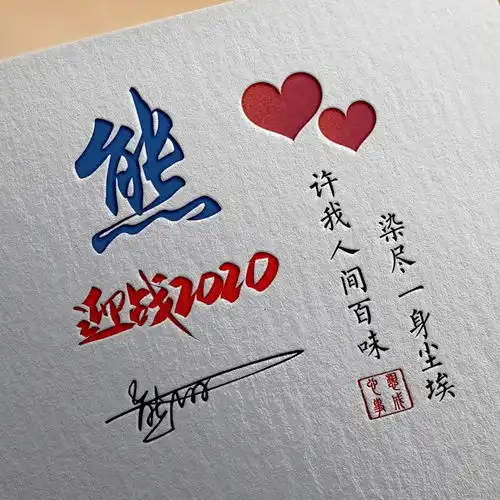 熊
迎战2020
染尽一身尘埃
许我人间百味